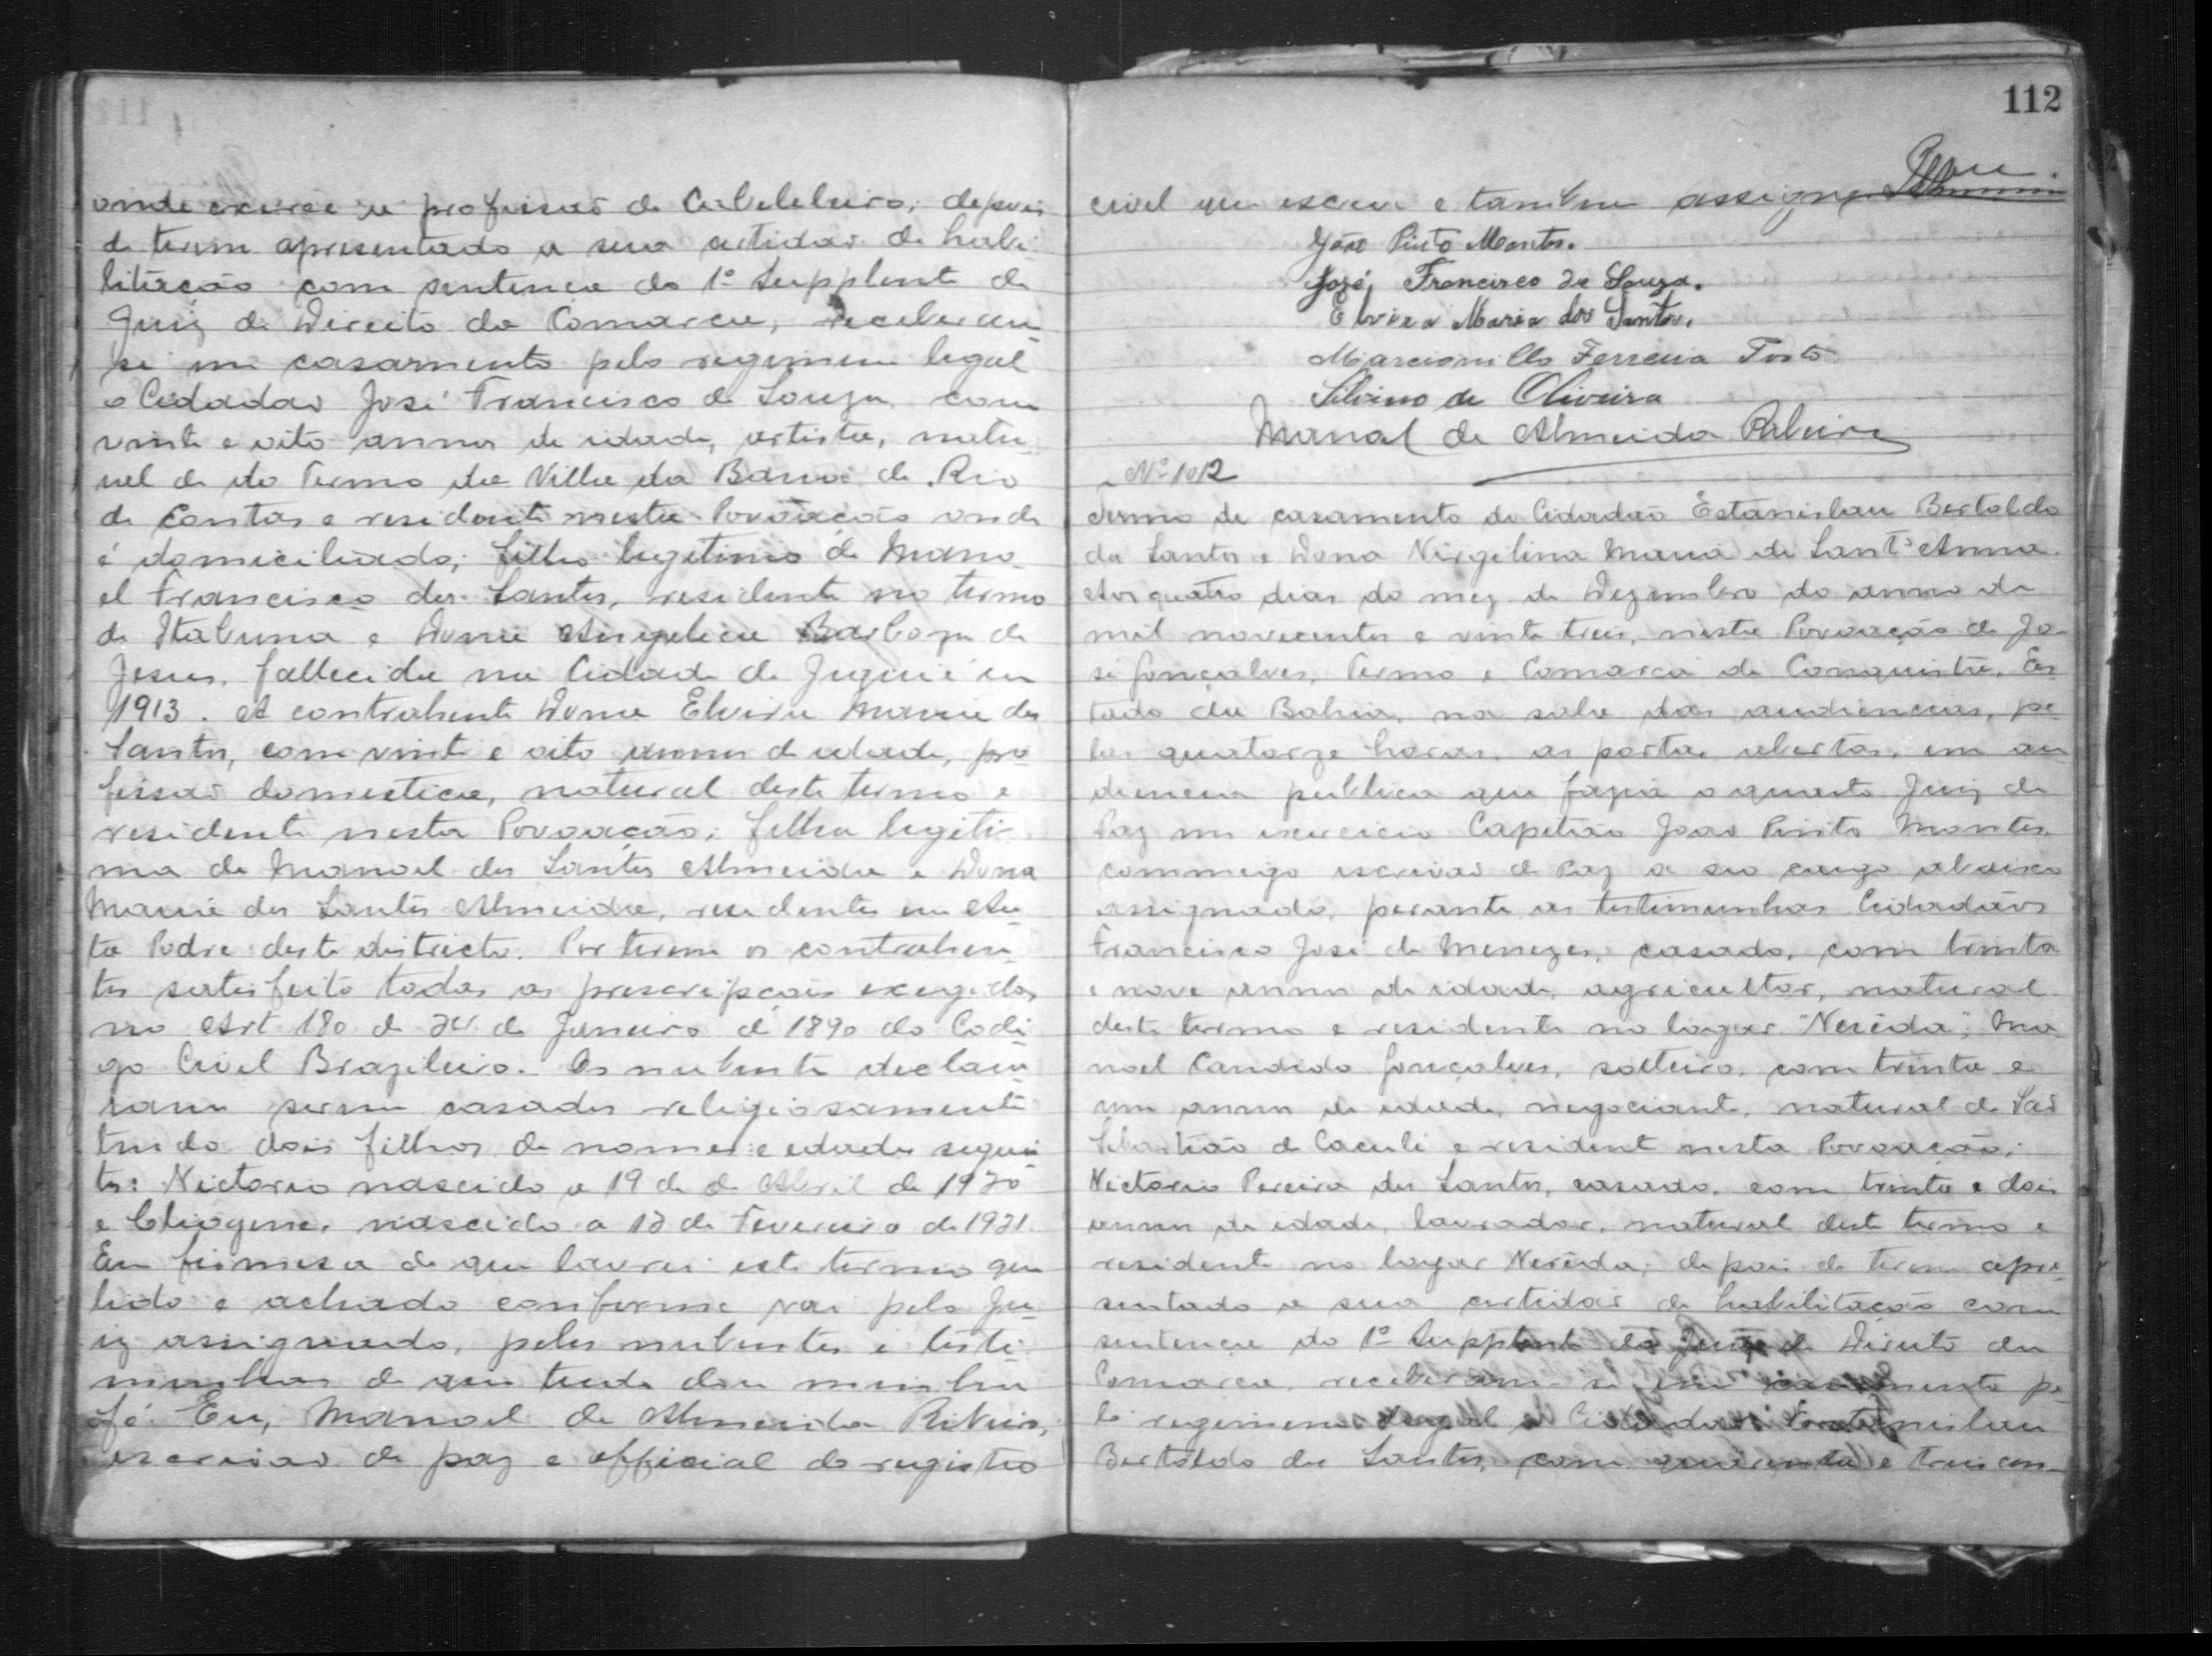 onde exerce a profissão de Cabeleleiro; depois
de terem apresentado a sua certidão de habi-
litação com sentença do 1º Supplente de
Juiz de Direito da Comarca, receberam
se em casamento pelo regimem legal
o Cidadão José Francisco de Souza, com
vinte e oito annos de idade, artista, natu-
ral do Termo da Villa da Barra do Rio
de Contas e residente nesta Povoação onde
é domiciliado; filho legitimo de Mano-
el Francisco dos Santos, residente no termo
de Itabuna e Dona Angelica Barboza de
Jesus, fallecida na Cidade de Jequié em
1913. A contrahente Dona Elvira Maria dos
Santos, com vinte e oito annos de idade, pro-
fissão domestica, natural deste termo e
residente nesta Povoação; filha legiti-
ma de Manoel dos Santos Almeida e Dona
Maria dos Santos Almeida, residentes em
deste districto. Por terem os contrahen-
tes satisfeito todas as prescripções exegidas
no Art 180 de 24 de Janeiro de 1890 do Codi-
go Civel Brazileiro. Os nubente decla-
ram serem casados religiosamente
tendo dois filhos de nomes e edades seguin-
tes: Victorio nascido a 19 de de Abril de 1920
e nascido a 12 de Fevereiro de 1921.
Em firmesa do que lavrei este termo que
lido e achado conforme vai pelo Ju-
iz assignado, pelos nubentes e teste-
munhas do que tudo dou minha
fé. Eu, Manoel de Almeida Ribeiro,
escrivão de paz e official do registro
112
civel que escrevi e tambem assigno
João Pinto Montes.
José Francisco de Souza.
Elvira Maria dos Santos.
Marcionillo Ferreira Porto
Silvino de Oliveira
Manoel de Almeida Ribeiro
Nº 1012
Termo de casamento do Cidadão Estanislau Bertoldo
dos Santos e Dona Virgelina Maria de Sant'Anna.
Aos quatro dias do mez de Dezembro do anno de
mil novecentos e vinte treis, nesta Povoação de Jo-
sé Gonçalves, Termo e Comarca de Conquista, Es-
tado da Bahia, na sala das audiencias, pe-
las quatorze horas, as portas abertas, em au-
diencia publica que fazia o quarto Juiz de
Paz em exercicio Capitão João Pinto Montes,
commigo escrivão de Paz a seo cargo abaixo
assignado, perante as testimunhas Cidadãos
Francisco José de Menezes, casado, com trinta
e nove annos de idade, agricultor, natural
deste termo e residente no logar "Nerêda"; Ma-
noel Candido Gonçalves, solteiro, com trinta e
um annos de edade, negociante, natural de São
Sebastião de Caculé e residente nesta Povoação;
Victorio Pereira dos Santos, casado, com trinta e dois
annos de idade, lavrador, natural deste termo e
residente no logar Nerêda; depois de terem apre-
sentado a sua certidão de habilitação com
sentença do 1º Supplente do Juiz de Direito da
Comarca, receberam-se em casamento pe-
lo regimem legal o Cidadão Estanislau
Bertoldo dos Santos, com quarenta e treis an-